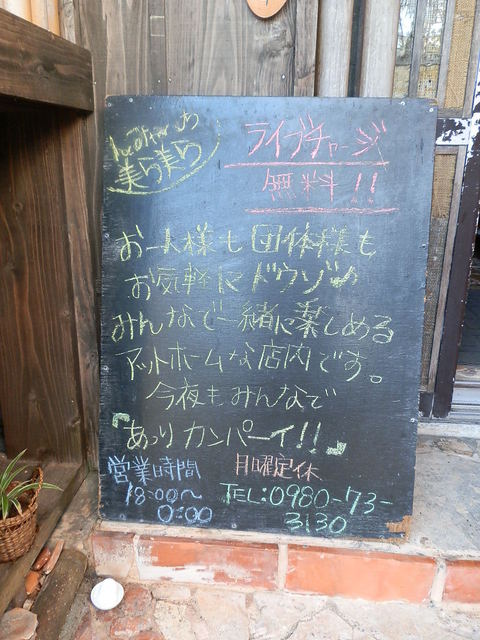 美ら美ら
ライブチャージ
無料!!
お一人様も団体様も
お気軽にドウゾ♪
みんなで一緒に楽しめる
アットホームな店内です。
今夜もみんなで
『あっり カンパーイ!!』
営業時間
18:00〜
0:00
日曜定休
TEL:0980-73-
3130